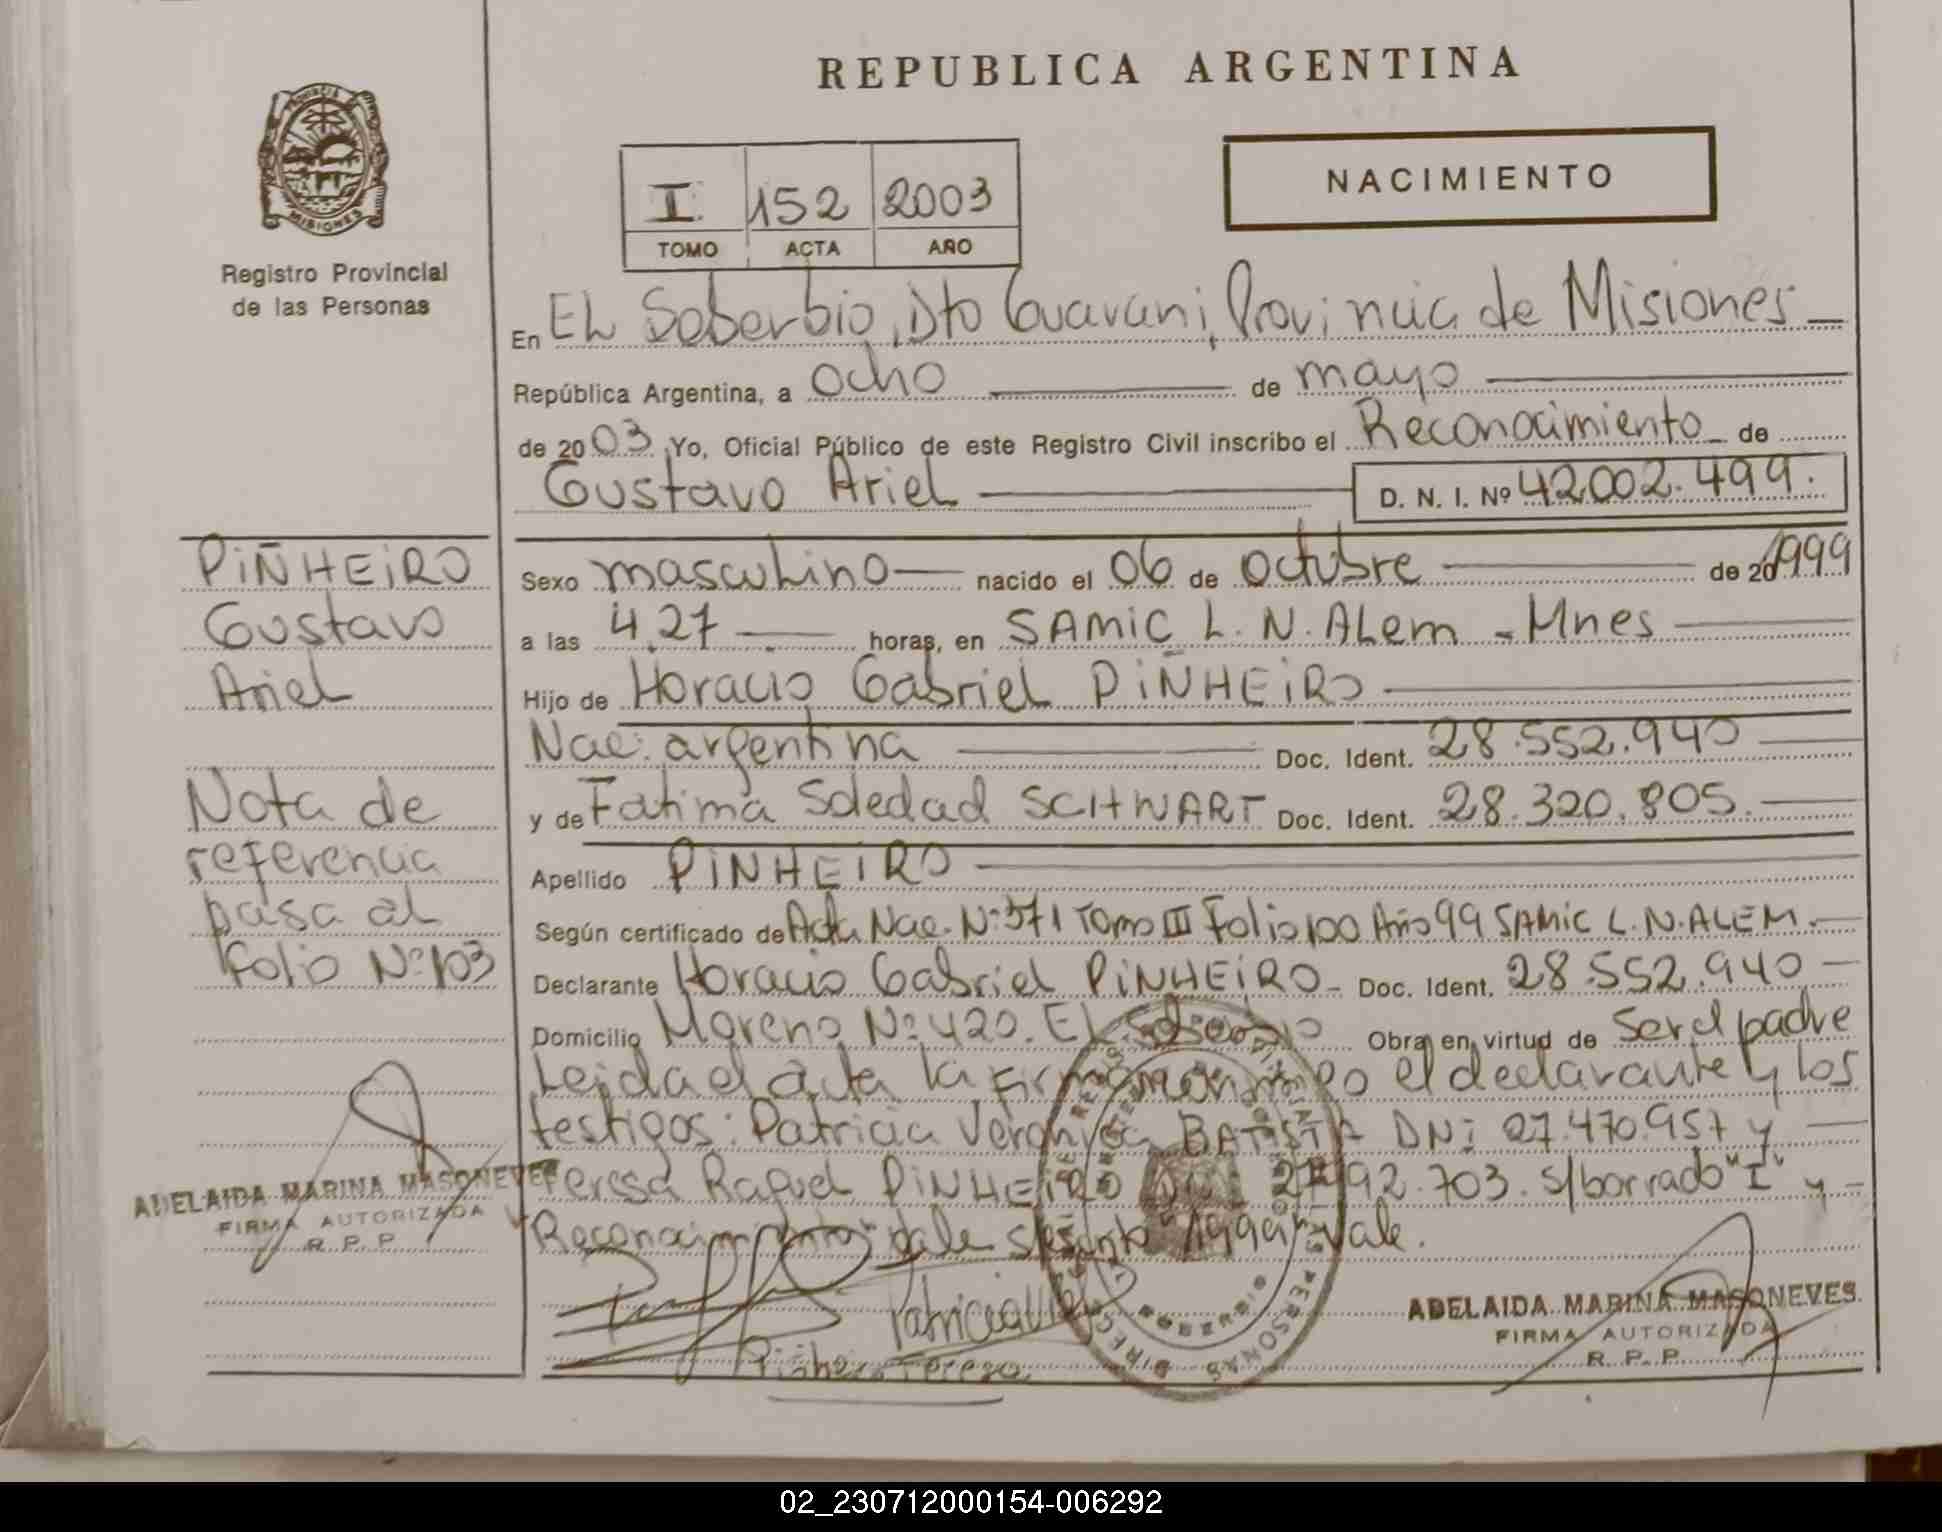 REPUBLICA ARGENTINA
PROVINCIA DE
MISIONES
Registro Provincial
de las Personas
I 152 2003
TOMO ACTA AÑO
NACIMIENTO
En EL Soberbio, Dto Guarani, Provincia de Misiones
República Argentina, a ocho de mayo
de 2003. Yo, Oficial Público de este Registro Civil inscribo el Reconocimiento de
Gustavo Ariel D. N. I. Nº 42.002.499.
PiÑHEiRO
Gustavo
Ariel
Nota de
referencia
pasa al
folio Nº 103
ADELAIDA MARINA MASONEVES
FIRMA AUTORIZADA
R. P. P.
Sexo masculino nacido el 06 de octubre de 20 1999
a las 4.27 horas, en SAMiC L. N. ALem - Mnes
Hijo de Horacio Gabriel PiÑHEiRO
Nac. argentina Doc. Ident. 28.552.940
y de Fatima Soledad SCHWART Doc. Ident. 28.320.805.
Apellido PiNHEiRO
Según certificado de Acta Nac. Nº 571 Tomo III Folio 100 Año 99 SAMiC L. N. ALEM.
Declarante Horacio Gabriel PiNHEiRO Doc. Ident. 28.552.940
Domicilio Moreno Nº 420. EL Soberbio Obra en virtud de Ser el padre
Leida el acta la firman conmigo el declarante y los
testigos: Patricia Veronica BATISTA DNi 27.470.957 y
Teresa Raquel PiNHEiRO 92.703. s/borrado "I" y
Reconocimiento" vale s/ "1999" Vale.
Patricia
Piñheiro Teresa
ADELAIDA MARINA MASONEVES
FIRMA AUTORIZADA
R. P. P.
02_230712000154-006292